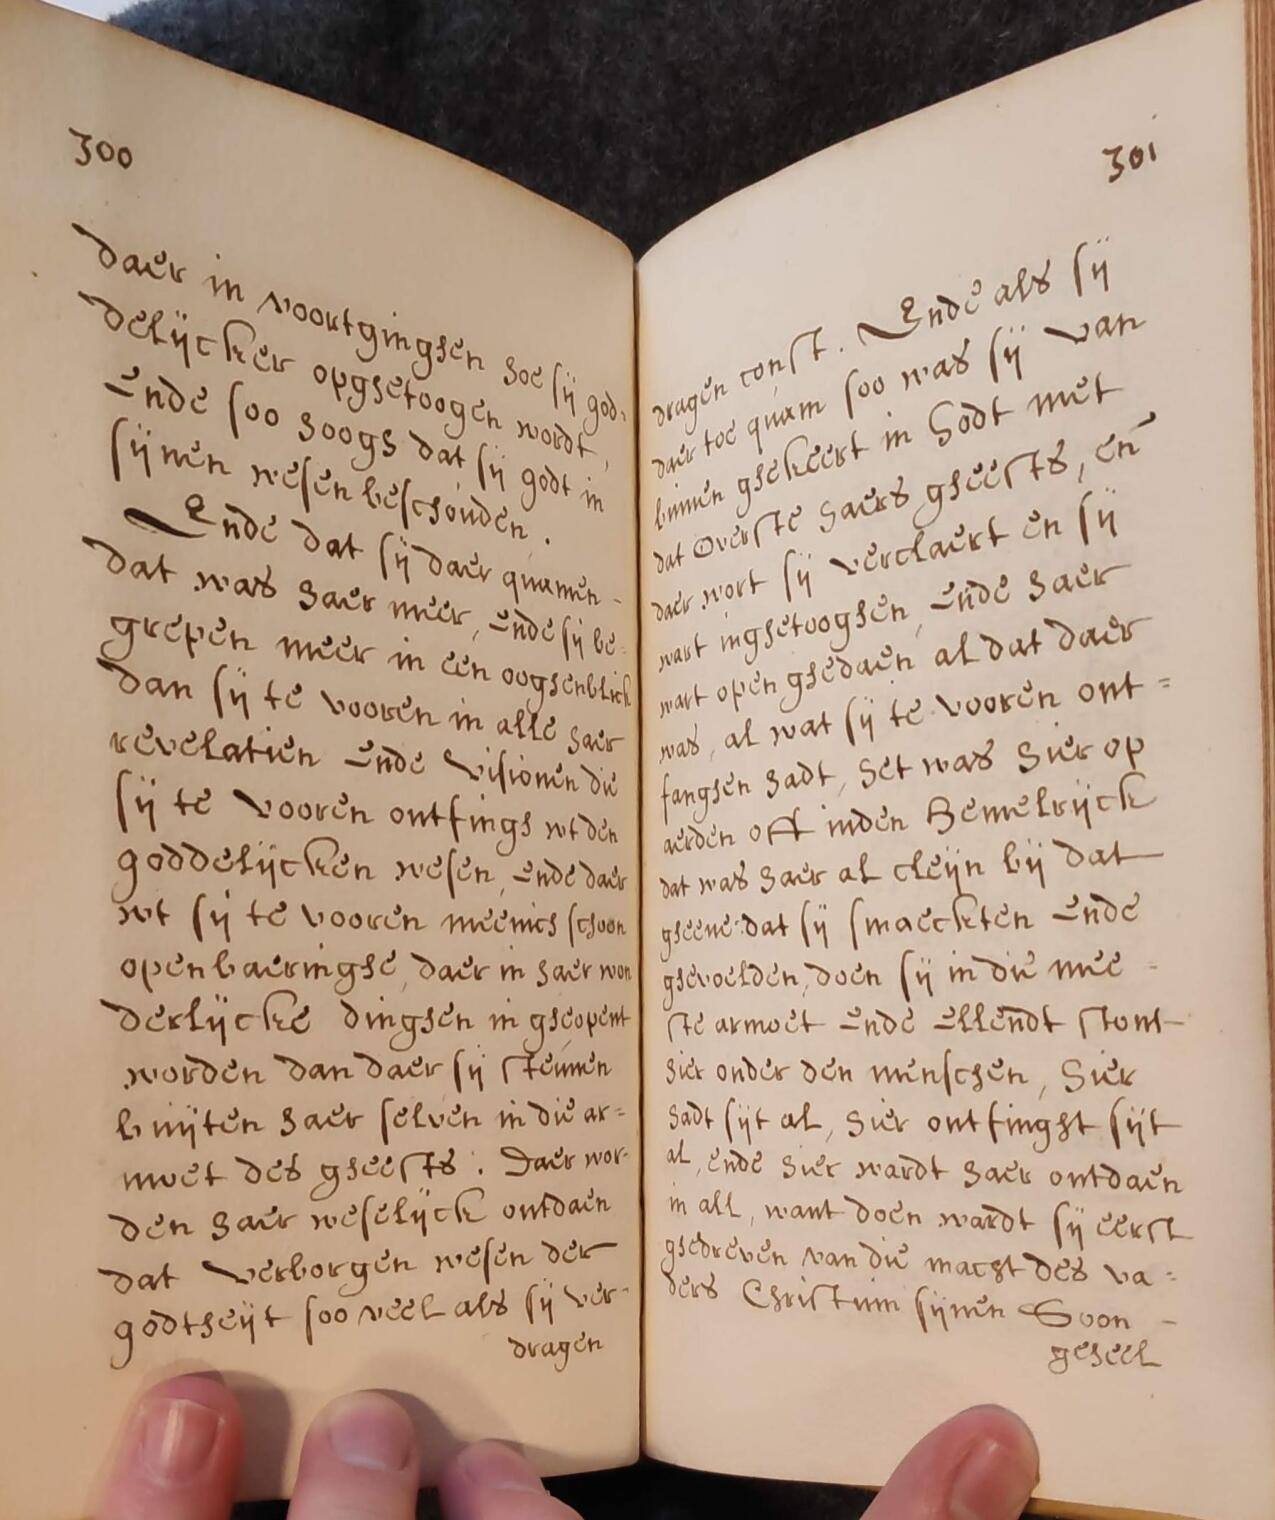 300
daer in voortginghen hoe sij god-
delijcker opghetoogen wordt,
ende soo hoogh dat sij godt in
sijnen wesen beschouden.
Ende dat sij daer quamen -
dat was haer meer, ende sij be-
grepen meer in een ooghenblick
dan sij te vooren in alle haer
revelatien ende visionen die
sij te vooren ontfingh wt den
goddelijcken wesen, ende daer
wt sij te vooren meenich schoon
openbaeringhe, daer in haer won
derlijcke dinghen in gheopent
worden dan daer sij steunen
buijten haer selven in die ar=
moet des gheests. Daer wor-
den haer weselijck ontdaen
dat verborgen wesen der
godtheijt soo veel als sij ver-
dragen
301
dragen const. Ende als sij
daer toe quam soo was sij van
binnen ghekeert in Godt met
dat overste haers gheests, en
daer wort sij verclaert en sij
wart inghetooghen, ende haer
wart open ghedaen al dat daer
was, al wat sij te vooren ont=
fanghen hadt, het was hier op
aerden oft inden Hemelrijck
dat was haer al cleijn bij dat
gheene dat sij smaeckten ende
ghevoelden, doen sij in die mee-
ste armoet ende ellendt stont
hier onder den menschen, hier
hadt sijt al, hier ontfinght sijt
al, ende hier wardt haer ontdaen
in all, want doen wardt sij eerst
ghedreven van die macht des va=
ders Christum sijnen Soon -
geheel